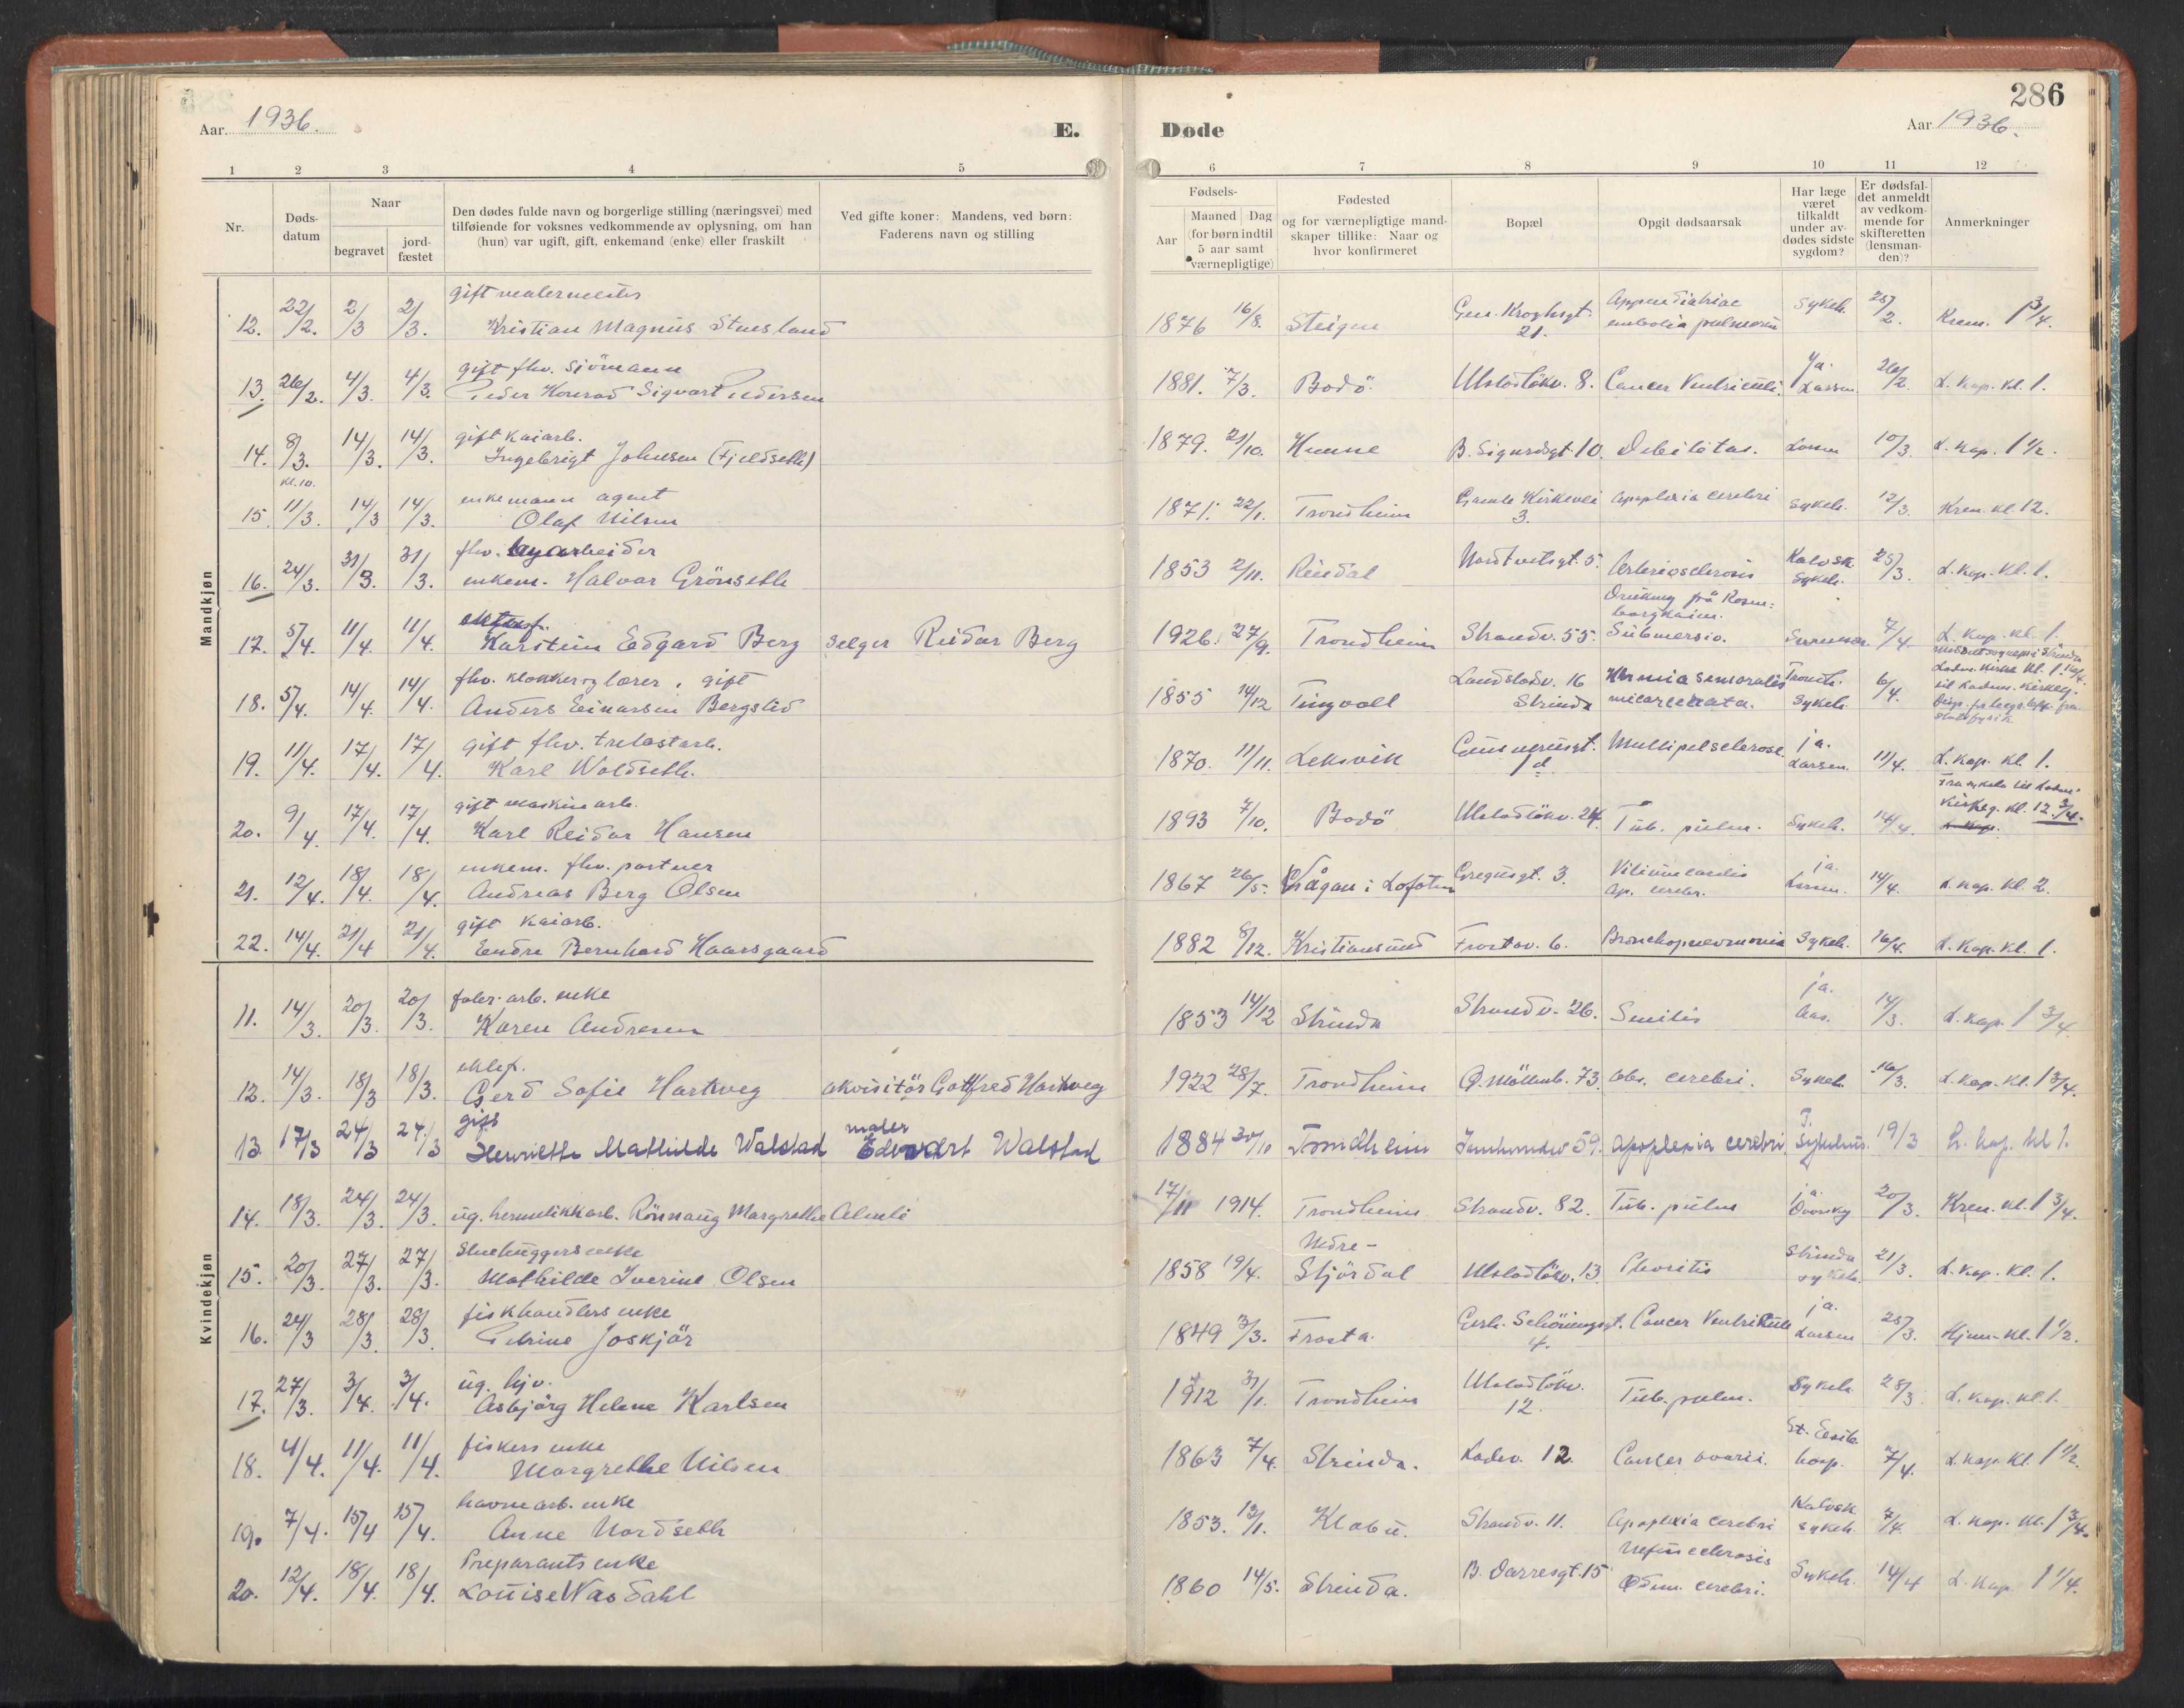 286
Aar 1936.
E.
Døde
Aar 1936.
1 2 3 4 5
6 7 8 9 10 11 12
Nr.
Døds-
datum
Naar
begravet
jord-
fæstet
Den dødes fulde navn og borgerlige stilling (næringsvei) med
tilføiende for voksnes vedkommende av oplysning, om han
(hun) var ugift, gift, enkemand (enke) eller fraskilt
Ved gifte koner: Mandens, ved børn:
Faderens navn og stilling
Fødsels-
Aar
Maaned Dag
(for børn indtil
5 aar samt
værnepligtige)
Fødested
og for værnepligtige mand-
skaper tillike: Naar og
hvor konfirmeret
Bopæl
Opgit dødsaarsak
Har læge
været
tilkaldt
under av-
dødes sidste
sygdom?
Er dødsfal-
det anmeldt
av vedkom-
mende for
skifteretten
(lensman-
den)?
Anmerkninger
Mandkjøn
gift malermester
12. 22/2. 2/3 2/3. Kristian Magnus 1876 16/8. Steigen Gen. Kroghsgt. 21. embolia pulmonum Sykeh. 25/2. Krem. 1 3/4.
gift fhv. sjömann
13. 26/2. 4/3. 4/3. Peder Konrad Sigvart Pedersen 1881. 7/3. Bodö. Ulstadlökv. 8. Cancer Ventriculi. ja. Larsen. 26/2. L. kap. kl. 1.
gift kaiarb.
14. 8/3. 14/3. 14/3. Ingebrigt Johnsen (Fjeldseth) 1879. 21/10. B. Sigurdsgt. 10. Debilitas. Larsen 10/3. L. kap. 1 1/2.
kl. 10.
enkemann agent
15. 11/3. 14/3 14/3. Olaf Nilsen 1871. 22/1. Trondheim Gamle Kirkevei 3. Apoplexia cerebri Sykeh. 12/3. Krem. kl. 12.
fhv. byarbeider
16. 24/3. 31/3. 31/3. enkem. Halvar Grönseth 1853 2/11. Rindal Nordtvetsgt. 5. Arteriosclerosis Kalvsk. Sykeh. 25/3. L. kap. kl. 1.
17. 5/4. 11/4. 11/4. Karstein Edgard Berg selger Reidar Berg 1926. 27/9. Trondheim Strandv. 55. Submersio. 7/4. L. kap. kl. 1.
fhv. klokker og lærer, gift
18. 5/4. 14/4. 14/4. Anders Einarsen Bergslid 1855 14/12 Tingvoll Landstadv. 16 Strinda Trondh. Sykeh. 6/4.
gift fhv. trelastarb.
19. 11/4. 17/4. 17/4. Karl Woldseth. 1870. 11/11. Leksvik Multipelsclerose ja. Larsen. 11/4. L. kap. kl. 1.
gift maskinarb.
20. 9/4 17/4. 17/4. Karl Reidar Hansen 1893 7/10. Bodö Ulstadlökv. 24. Tub. pulm. Sykeh. 14/4. Kirkeg. kl. 12 3/4.
enkem. fhv. partner
21. 12/4. 18/4. 18/4. Andreas Berg Olsen 1867 26/5. Vågan i Lofoten Gregusgt. 3. Ap. cerebr. ja. Larsen. 14/4. L. kap. kl. 2.
gift kaiarb.
22. 14/4. 21/4 21/4. Endre Bernhard Haarsgaard 1882 8/12. Kristiansund Frostav. 6. Bronchopneumonia Sykeh. 16/4. L. kap. kl. 1.
Kvindekjøn
fabr. arb. enke
11. 14/3. 20/3. 20/3. Karen Andresen 1853 14/12 Strinda Strandv. 26. Senilis ja. Aas. 14/3. L. kap. 1 3/4.
12. 14/3. 18/3 18/3. Gerd Sofie Hartveg akvisitör Gottfred Hartveg 1922 28/7. Trondheim Ö. Möllenb. 73. abs. cerebri. Sykeh. 16/3. L. kap. kl. 1 3/4.
gift maler
13. 17/3 24/3 24/3 Henriette Mathilde Walstad Edvart Walstad 1884 30/10 Trondheim 59. Apoplexia cerebri T. Sykehus. 19/3 L. kap. kl 1.
14. 18/3. 24/3. 24/3. ug. hermetikkarb. Rönnaug Margrethe Almli 17/11 1914. Trondheim Strandv. 82. Tub. pulm ja. 20/3. Krem. kl. 1 3/4.
Stenhuggers enke
15. 20/3. 27/3. 27/3. Mathilde Iverine Olsen 1858 19/4. Nedre-Stjördal Ulstadlökv. 13 Strinda sykeh. 21/3. L. kap. kl. 1.
fiskhandlers enke
16. 24/3 28/3. 28/3. Petrine Joskjär 1849 3/3. Frosta. Gerh. Schöningsgt. 4. Cancer Ventriculi ja. Larsen 25/3. Hjem. kl. 1 1/2.
ug. hjv.
17. 27/3. 3/4. 3/4. Asbjörg Helene Karlsen 1912 31/1. Trondheim Ulstadlökv. 12. Tub. pulm. Sykeh. 28/3 L. kap. kl. 1.
fiskers enke
18. 4/4. 11/4. 11/4. Margrethe Nilsen 1863 7/4. Strinda. Ladev. 12. Cancer ovarii. hosp. 7/4. L. kap. kl. 1 1/2.
havnearb. enke
19. 7/4. 15/4 15/4. Anne Nordseth 1853. 13/1. Klæbu. Strandv. 11. Apoplexia cerebri Kalvsk. sykeh. 7/4. L. kap. kl. 1 3/4.
Preparants enke
20. 12/4. 18/4. 18/4. Louise Wasdahl 1860 14/5. Strinda. 15 cerebri. Sykeh. 14/4 L. kap. 1 1/4.